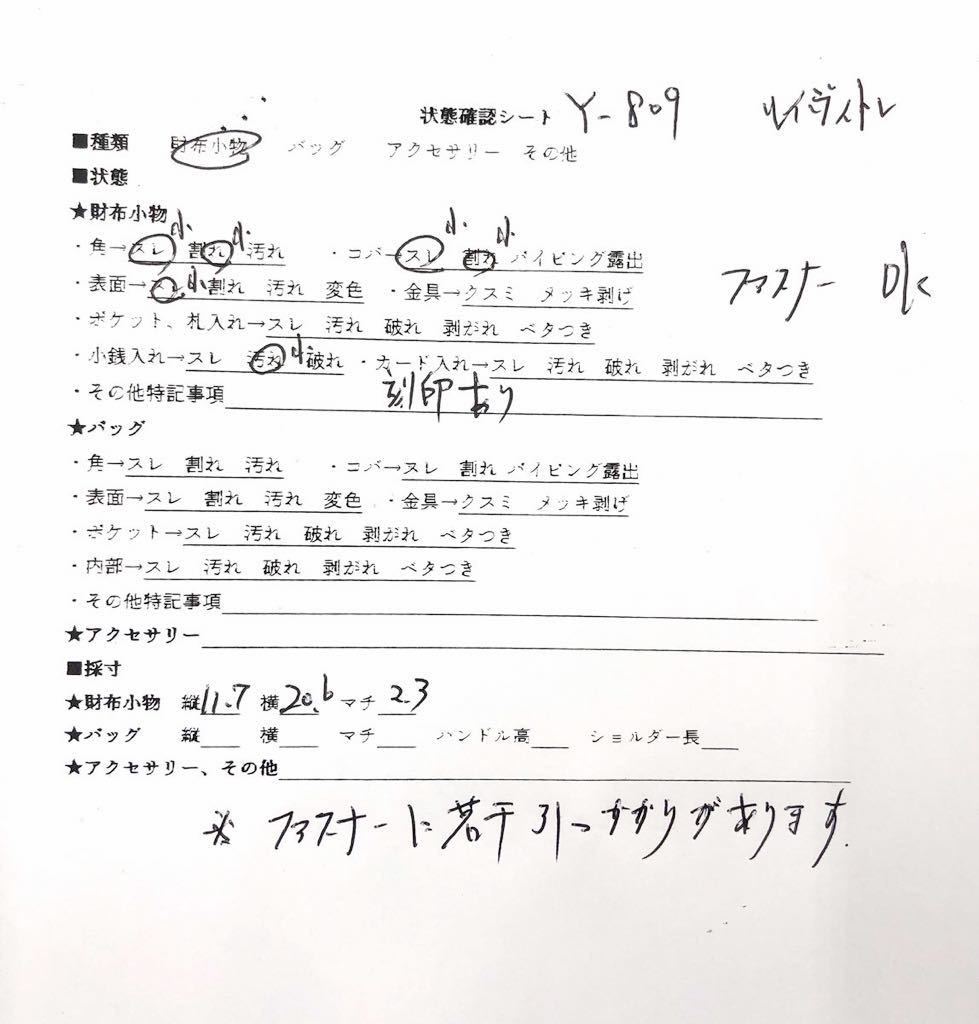 状態確認シート Y-809 ルイヴィトン
■種類 財布小物 バッグ アクセサリー その他
■状態
★財布小物
・角→スレ 小 割れ 小 汚れ ・コバ→スレ 小 割れ 小 パイピング露出
・表面→スレ 小 割れ 汚れ 変色 ・金具→クスミ メッキ剥げ ファスナー OK
・ポケット、札入れ→スレ 汚れ 破れ 剥がれ ベタつき
・小銭入れ→スレ 汚れ 小 破れ ・カード入れ→スレ 汚れ 破れ 剥がれ ベタつき
・その他特記事項 刻印あり
★バッグ
・角→スレ 割れ 汚れ ・コバ→スレ 割れ パイピング露出
・表面→スレ 割れ 汚れ 変色 ・金具→クスミ メッキ剥げ
・ポケット→スレ 汚れ 破れ 剥がれ ベタつき
・内部→スレ 汚れ 破れ 剥がれ ベタつき
・その他特記事項
★アクセサリー
■採寸
★財布小物 縦11.7 横20.6 マチ2.3
★バッグ 縦 横 マチ ハンドル高 ショルダー長
★アクセサリー、その他
※ ファスナーに若干引っかかりがあります.